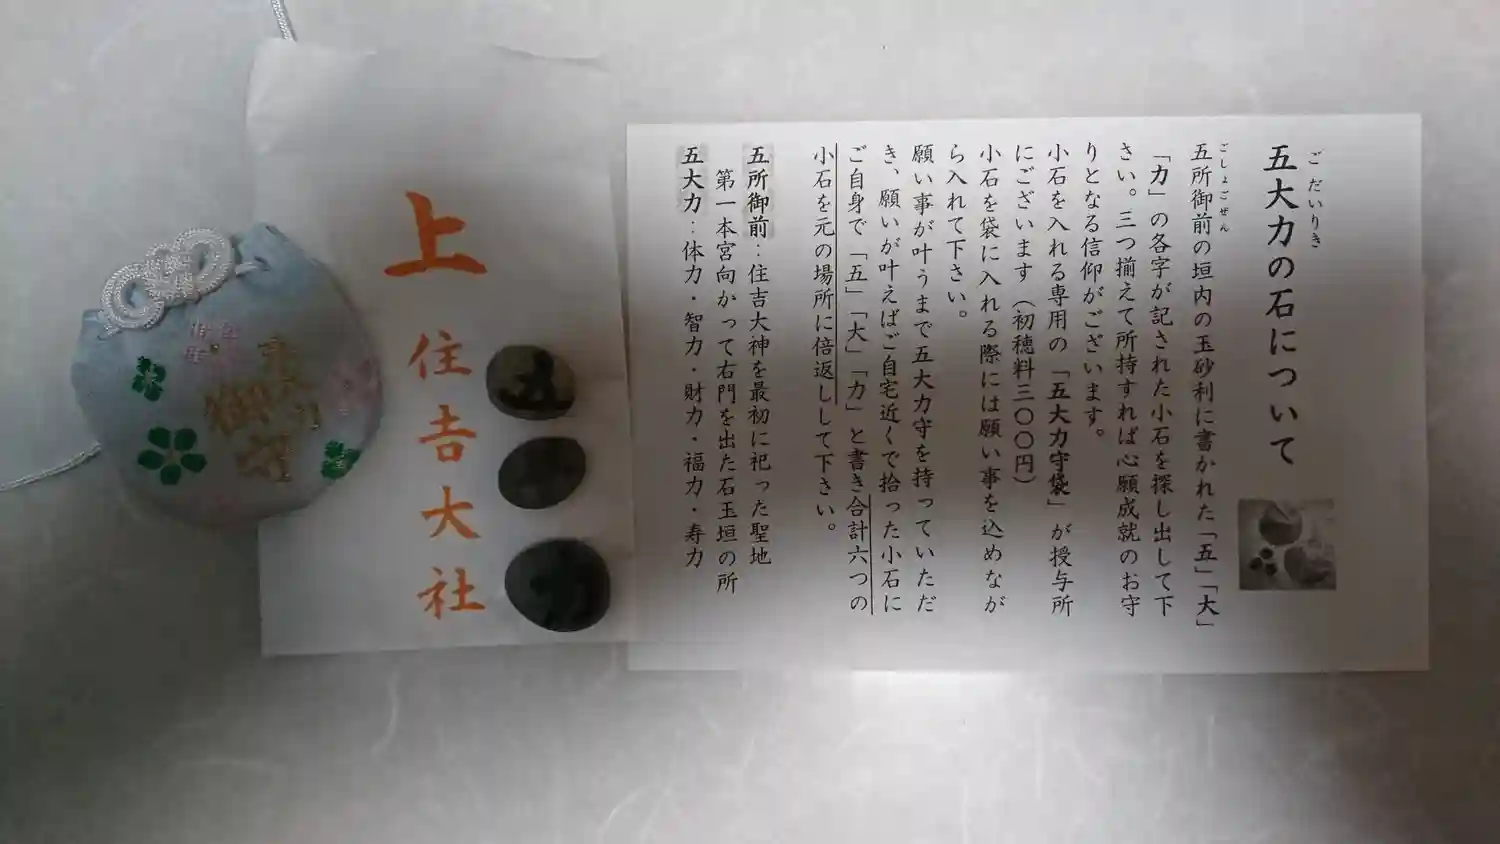 五大力の石について
ごだいりき
五所御前の垣内の玉砂利に書かれた「五」「大」
ごしょごぜん
「力」の各字が記された小石を探し出して下
さい。三つ揃えて所持すれば心願成就のお守
りとなる信仰がございます。
小石を入れる専用の「五大力守袋」が授与所
にございます（初穂料三〇〇円）
小石を袋に入れる際には願い事を込めなが
ら入れて下さい。
願い事が叶うまで五大力守を持っていただ
き、願いが叶えばご自宅近くで拾った小石に
ご自身で「五」「大」「力」と書き合計六つの
小石を元の場所に倍返しして下さい。
五所御前：住吉大神を最初に祀った聖地
第一本宮向かって右門を出た石玉垣の所
五大力：体力・智力・財力・福力・寿力
上
住吉大社